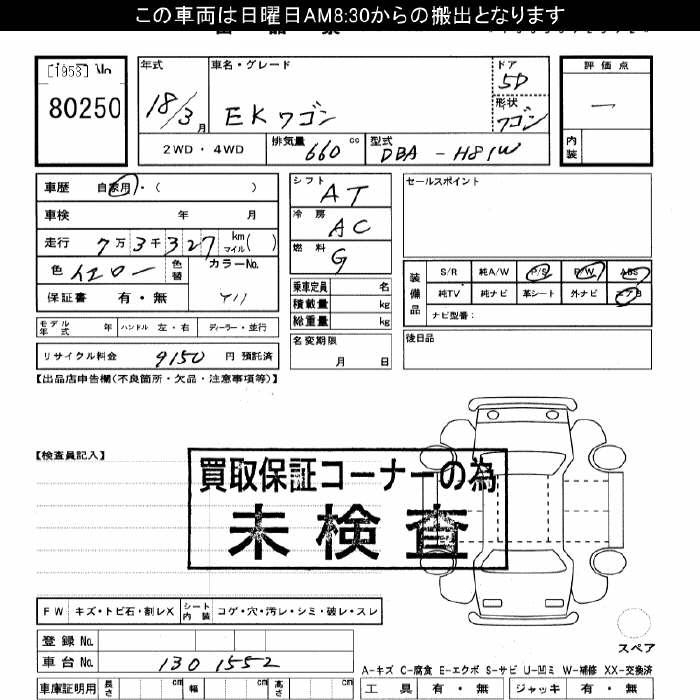 この車両は日曜日AM8:30からの搬出となります
[1953] No
80250
年式
18/3月
車名・グレード
EKワゴン
ドア
5D
形状
ワゴン
評価点
一
内装
2WD・4WD
排気量 660 cc
型式 DBA-H81W
車歴 自家用・( )
車検 年 月
走行 7万3千327 km マイル( )
色 イエロー 色替
カラーNo. Y11
保証書 有・無
モデル年式 年 ハンドル 左・右 ディーラー・並行
リサイクル料金 9150 円 預託済
シフト AT
冷房 AC
燃料 G
乗車定員 名
積載量 kg
総重量 kg
名変期限
月 日
セールスポイント
装備品
S/R 純A/W P/S P/W ABS
純TV 純ナビ 革シート 外ナビ エアB
ナビ型番:
後日品
【出品店申告欄(不良箇所・欠品・注意事項等)】
【検査員記入】
買取保証コーナーの為
未検査
FW キズ・トビ石・割レX シート内装 コゲ・穴・汚レ・シミ・破レ・スレ
登録No.
車台No. 1301552
車庫証明用 長さ cm 幅 cm 高さ cm
スペア
A-キズ C-腐食 E-エクボ S-サビ U-凹ミ W-補修 XX-交換済
工具 有・無 ジャッキ 有・無